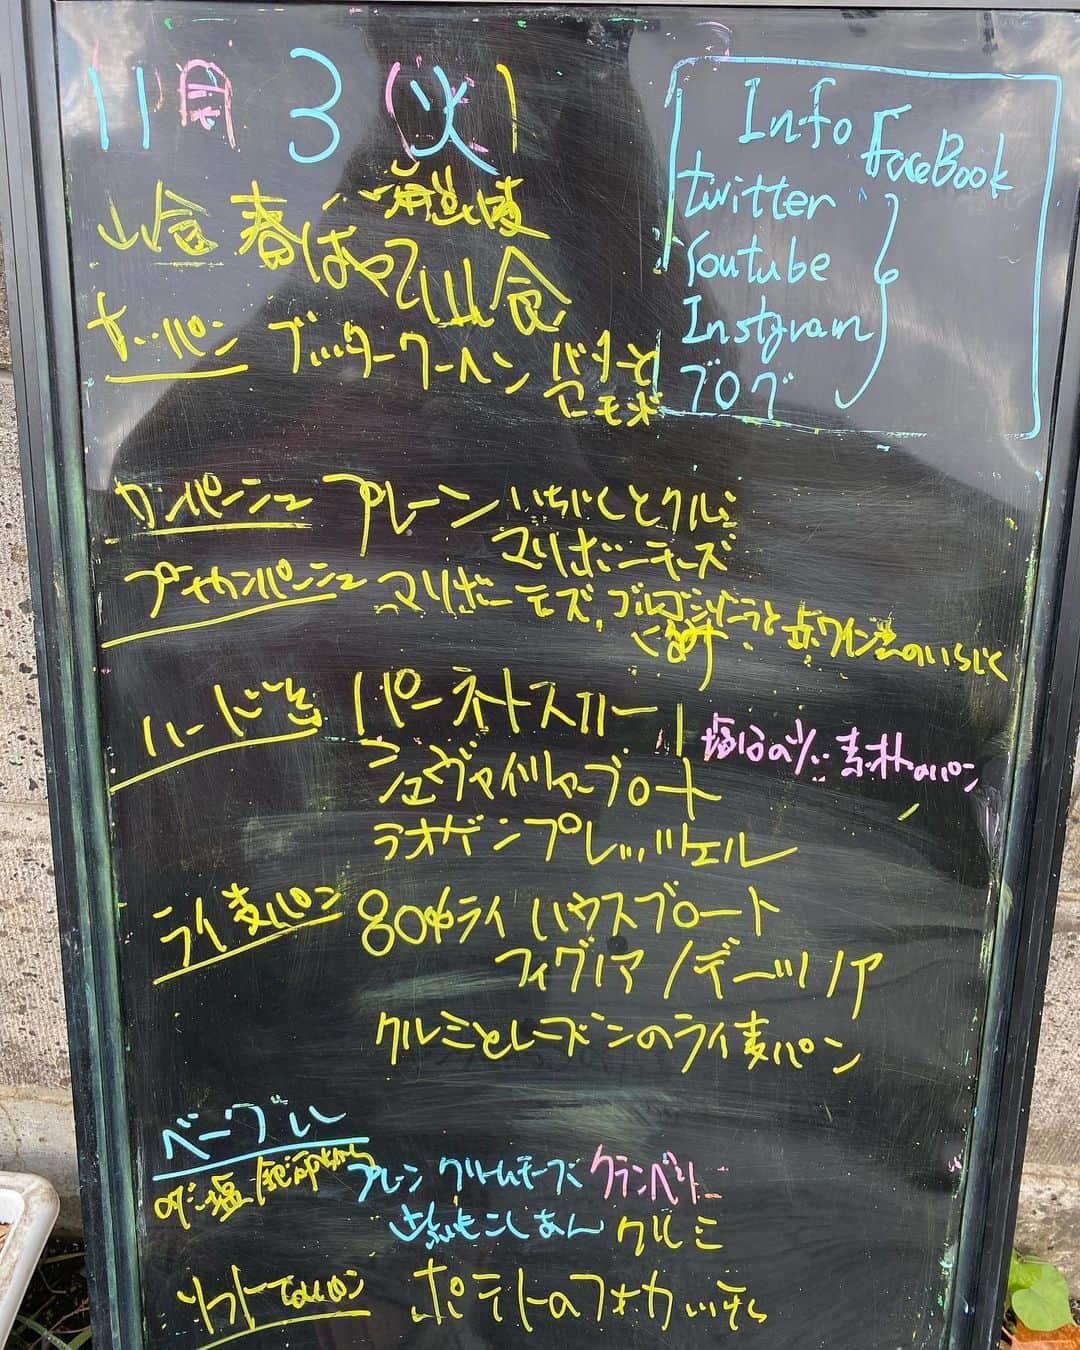 11月3(火)
Info
FaceBook
twitter
Youtube
Instgram
ブログ
山食 春
はやて山食
パン ブッタークーヘン バターと
アーモンド
カンパーニュ プレーン いちじくとクルミ
マリボーチーズ
プチカンパーニュ マリボーチーズ, ゴルゴンゾーラと
くるみ 赤ワイン のいちじく
ハード パーネトスカーノ 素朴なパン
シュヴァイツァーブロート
ラオゲンプレッツェル
ライ麦パン 80%ライ ハウスブロート
フィグノア / デーツノア
クルミとレーズンのライ麦パン
ベーグル
塩 プレーン クリームチーズ クランベリー
こしあん クルミ
ソフト パン ポテトのフォカッチャ